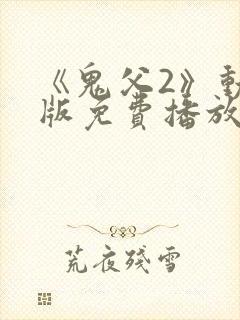 《鬼父2》動
版免費播放
荒夜殘雪